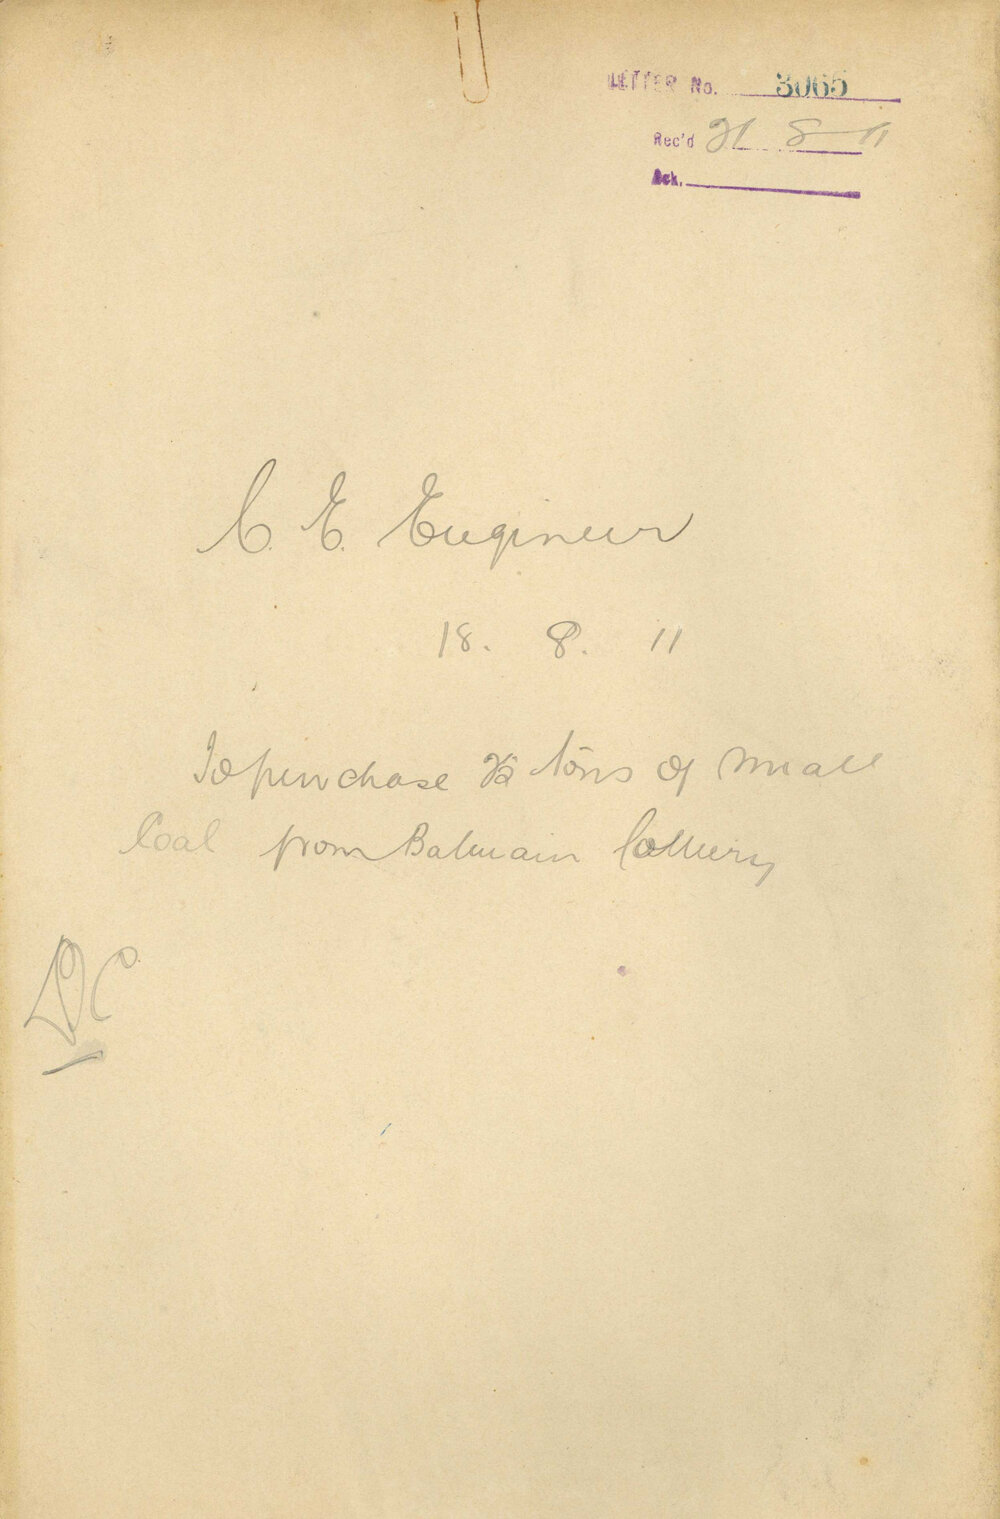 LETTER No. 3065
Rec'd 21 8 11
Ack.
C. E. Engineer
18. 8. 11
To purchase tons of small
Coal from Balmain Colliery